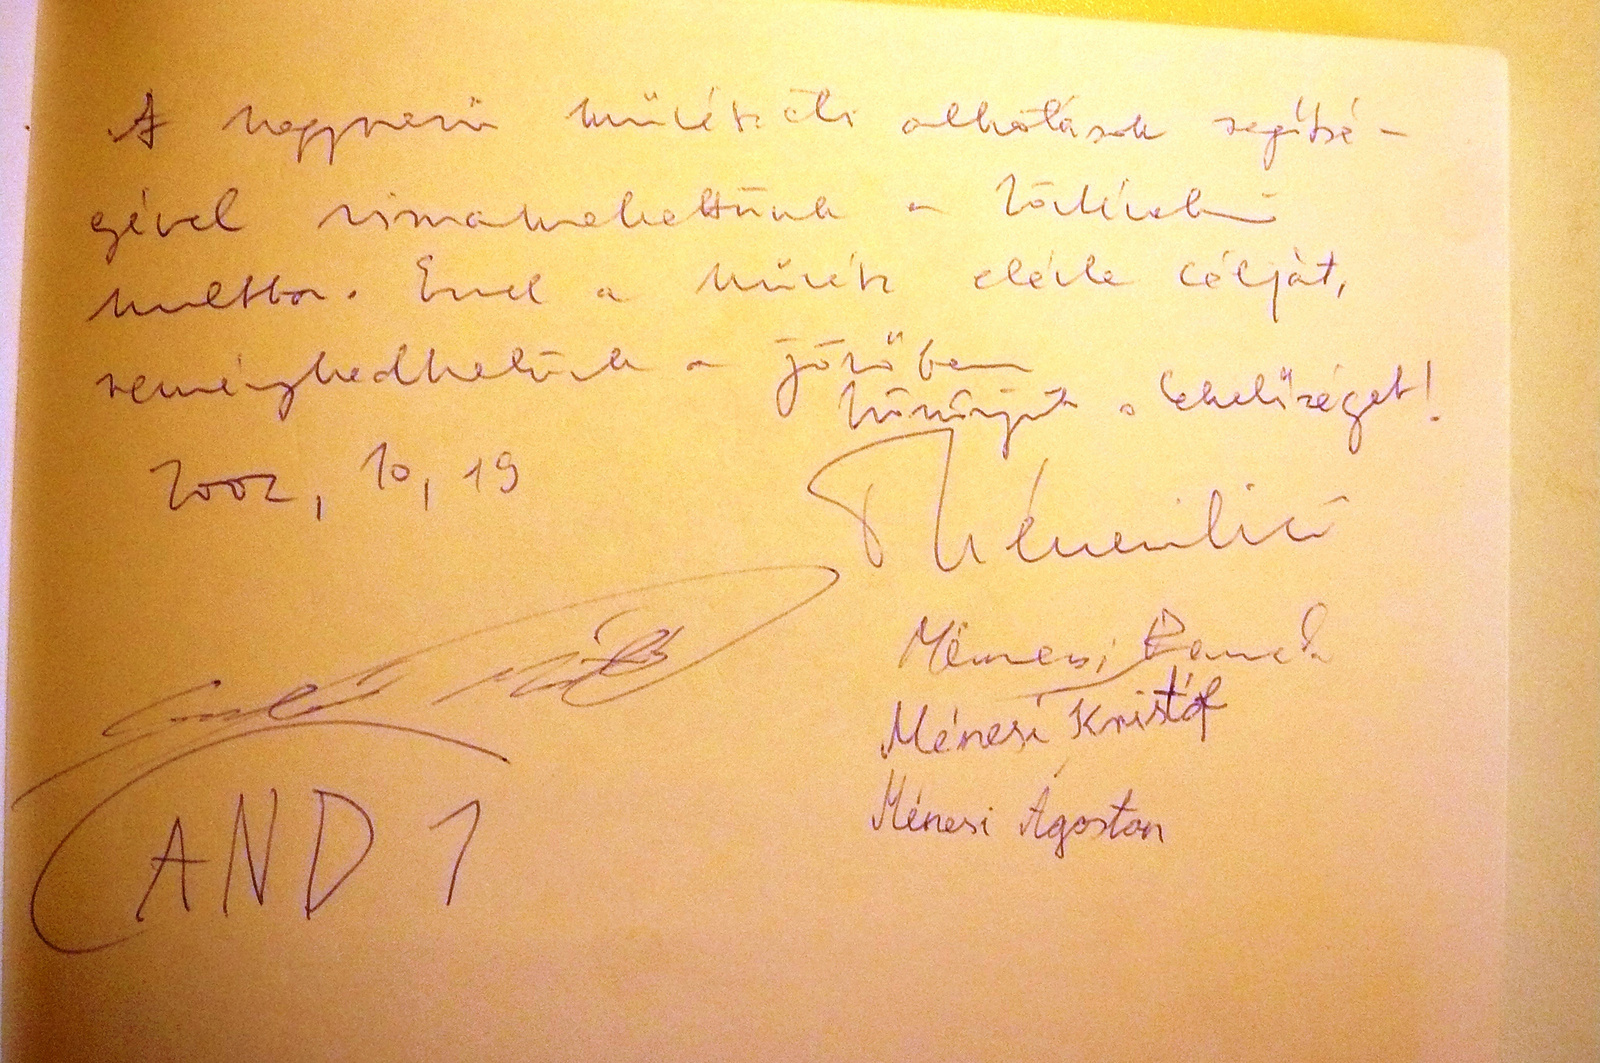 A nagyszerű művészeti alkotások segítsé-
gével visszatekinthettünk a történelmi
multba. Ezzel a művész elérte célját,
reménykedhetünk a jövőben
köszönjük a lehetőséget!
2002, 10, 19
Ménesi
Ménesi Kristóf
Ménesi Ágoston
AND 1